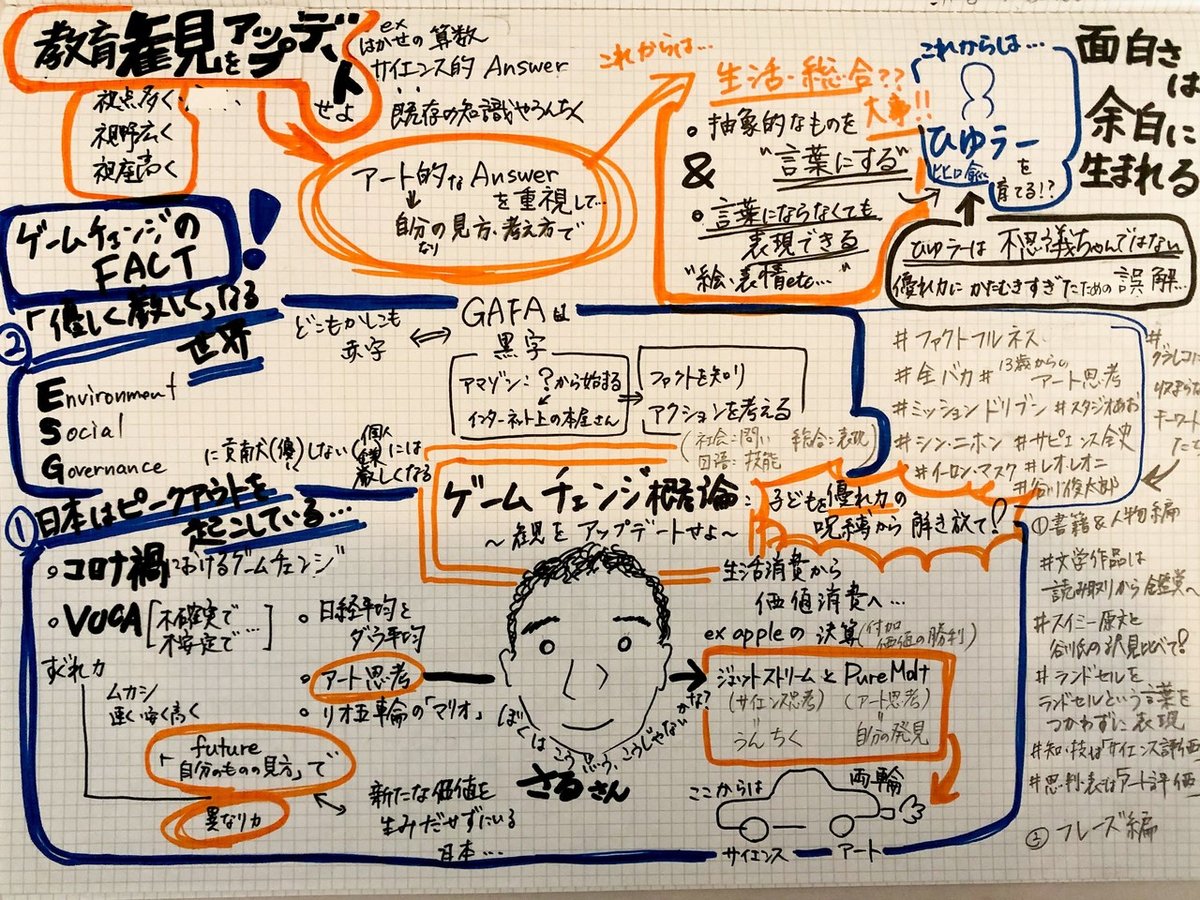 教育観をアップデート
せよ
視点多く
視野広く
視座高く
ex
はかせの算数
サイエンス的 Answer
既存の知識やうんちく
アート的なAnswer
を重視して…
自分の見方・考え方で
なり
これからは…
生活・総合??
大事!!
抽象的なものを
"言葉にする"
&
言葉にならなくても
表現できる
"絵・表情etc…"
これからは…
ひゆうー
を
育てる!?
面白さ
は
余白に
生まれる
ひゆラーは 不思議ちゃんではない
優れ力に かたむきすぎたための 誤解…
ゲームチェンジの
FACT!
「優しく厳しく」なる
世界
②
Environment
Social
Governance
に貢献(優)しない
個人
には
厳しくなる
どこもかしこも
赤字
⇔
GAFAは
黒字
アマゾン:?から始まる
インターネット上の本屋さん
ファクトを知り
アクションを考える
(社会:問い 総合:表現)
国語:技能
ゲームチェンジ概論:
～観をアップデートせよ～
子どもを優れ力の
呪縛から解き放て!
①
日本はピークアウトを
起こしている…
コロナ禍におけるゲームチェンジ
VUCA
不確実で
不安定で…
すぐれ力
ムカシ
速く 強く 高く
future
「自分のものの見方」で
異なり力
日経平均と
ダウ平均
アート思考
リオ五輪の「マリオ」
新たな価値を
生みだせずにいる
日本…
ぼくはこう思う、こうじゃないかな?
さるさん
生活消費から
価値消費へ…
ex appleの決算(付加価値の勝利)
ジェットストリームとPure Malt
(サイエンス思考)(アート思考)
うんちく 自分の発見
ここからは
両輪
サイエンス アート
#ファクトフルネス
#全バカ #13歳からのアート思考
#ミッションドリブン #スタジオあお
#シン・ニホン #サピエンス全史
#イーロン・マスク #レオ・レオニ
#谷川俊太郎
①書籍&人物編
#
グラレコに
収まらな
キーワード
たち
#文学作品は
読み取りから鑑賞へ
#スイミー原文と
谷川氏の訳見比べて!
#ランドセルを
ランドセルという言葉を
つかわずに表現
#知・技は「サイエンス評価
#思・判・表は「アート評価
② フレーズ編